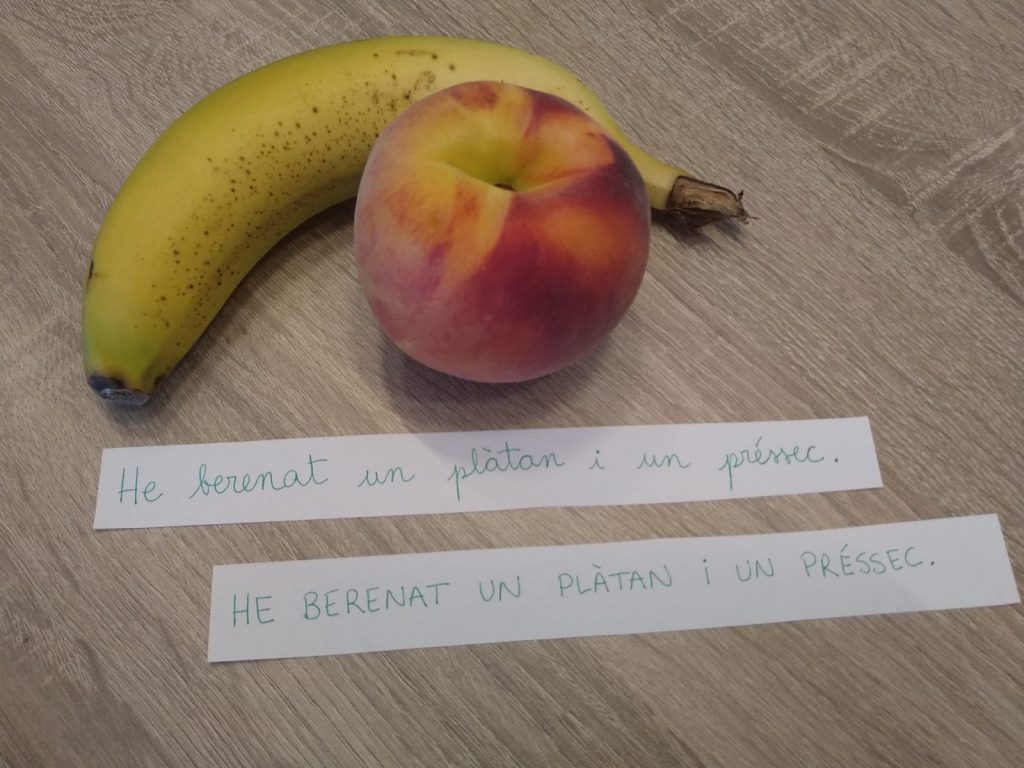 He berenat un plàtan i un préssec.
HE BERENAT UN PLÀTAN i UN PRÉSSEC.